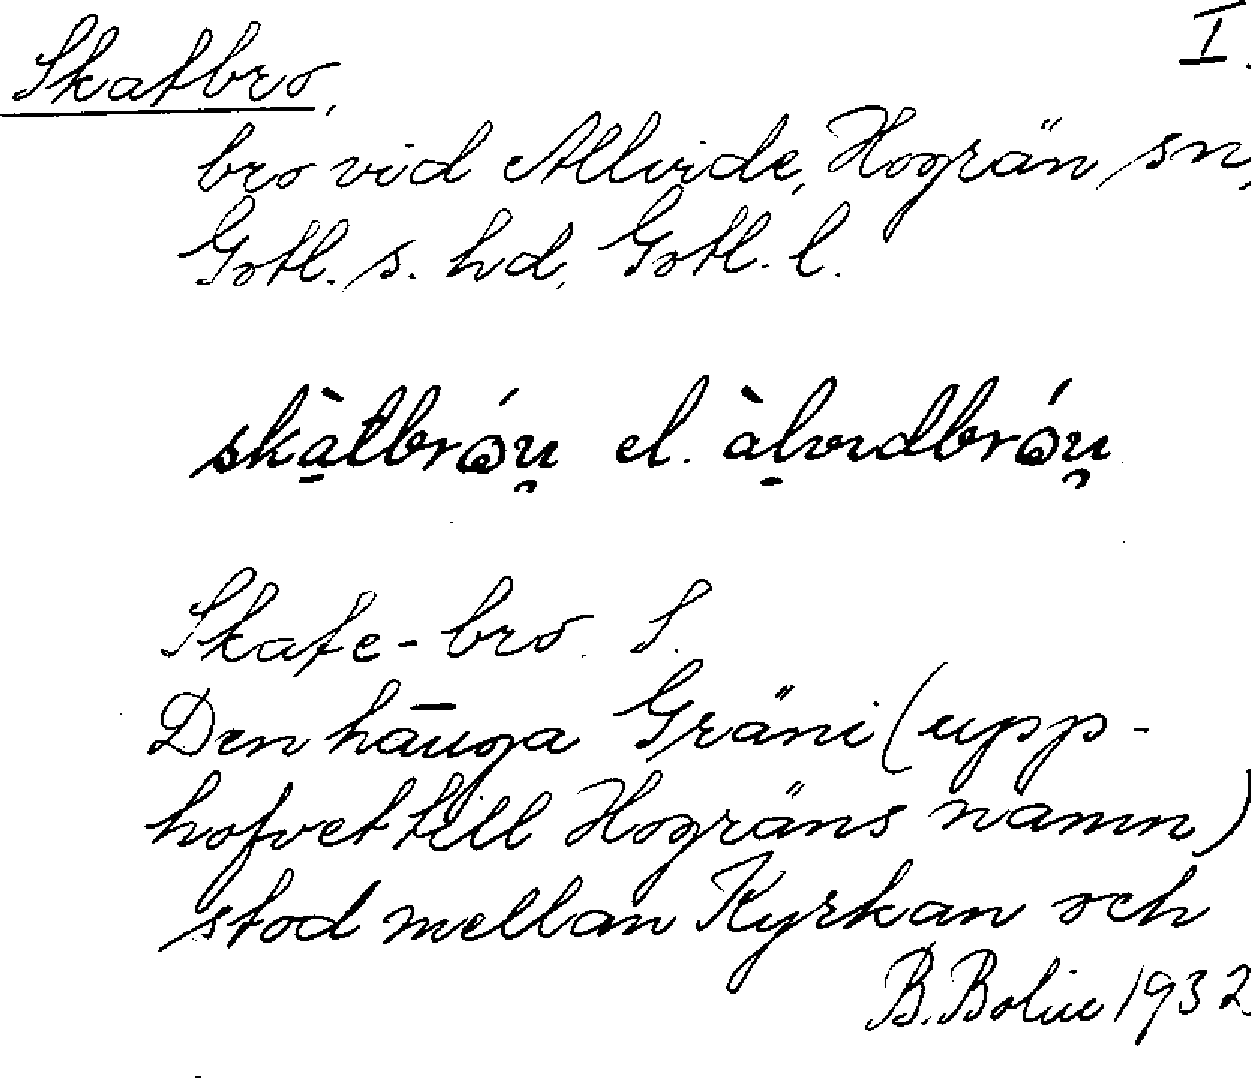 I.
Skatbro,
bro vid Allvide, Hogrän sn,
Gotl. s. hd, Gotl. l.
skàtbróu̯ el. àlvıdbróu̯
Skate-bro. S.
Den hāuga Gräni (upp-
hofvet till Hogräns namn)
stod mellan Kyrkan och
B. Bolin 1932